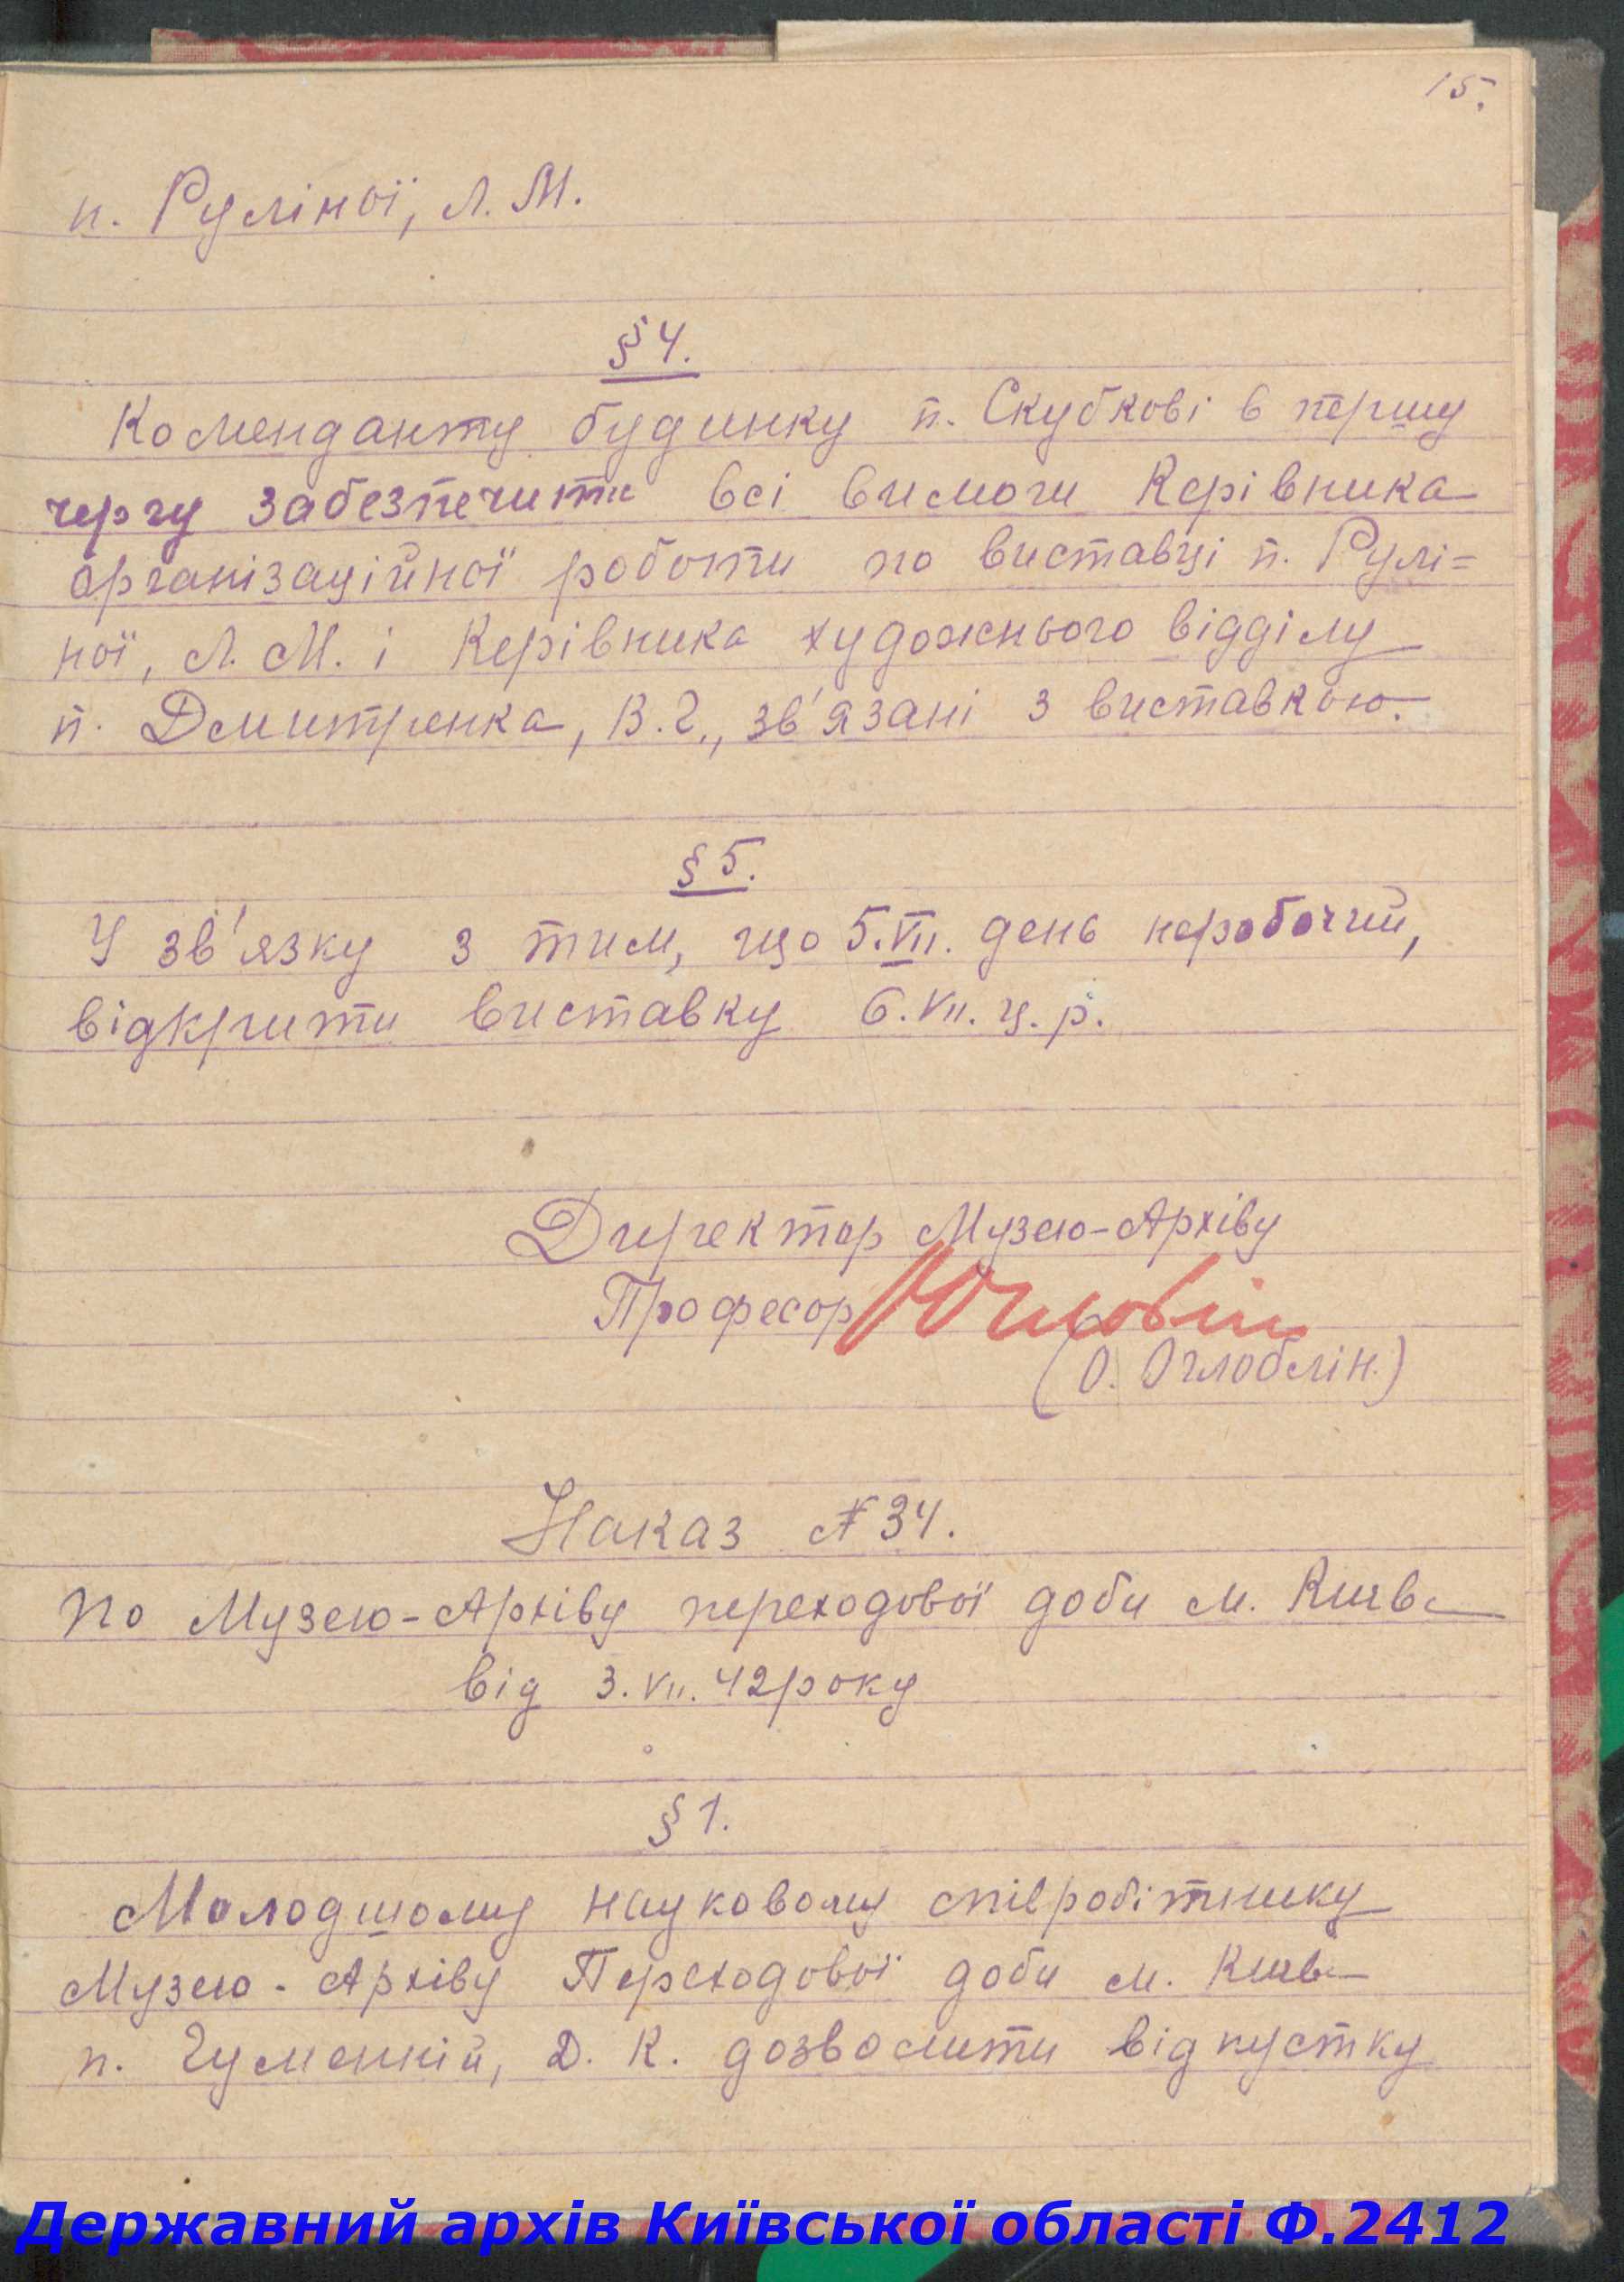 15.
п. Руліної, Л. М.
§ 4.
Коменданту будинку п. Скубкові в першу
чергу забезпечити всі вимоги Керівника
організаційної роботи по виставці п. Рулі=
ної, Л. М. і Керівника художнього відділу
п. Дмитренка, В. Г., зв'язані з виставкою.
§ 5.
У зв'язку з тим, що 5.VII. день неробочий,
відкрити виставку 6.VII. ц. р.
Директор Музею-Архіву
Професор
(О. Оглоблін.)
Наказ № 34.
по Музею-Архіву переходової доби м. Києва
від 3.VII. 42 року
§ 1.
Молодшому науковому співробітнику
Музею-Архіву Переходової доби м. Києва
п. Гуменній, Д. К. дозволити відпустку
Державний архів Київської області Ф.2412